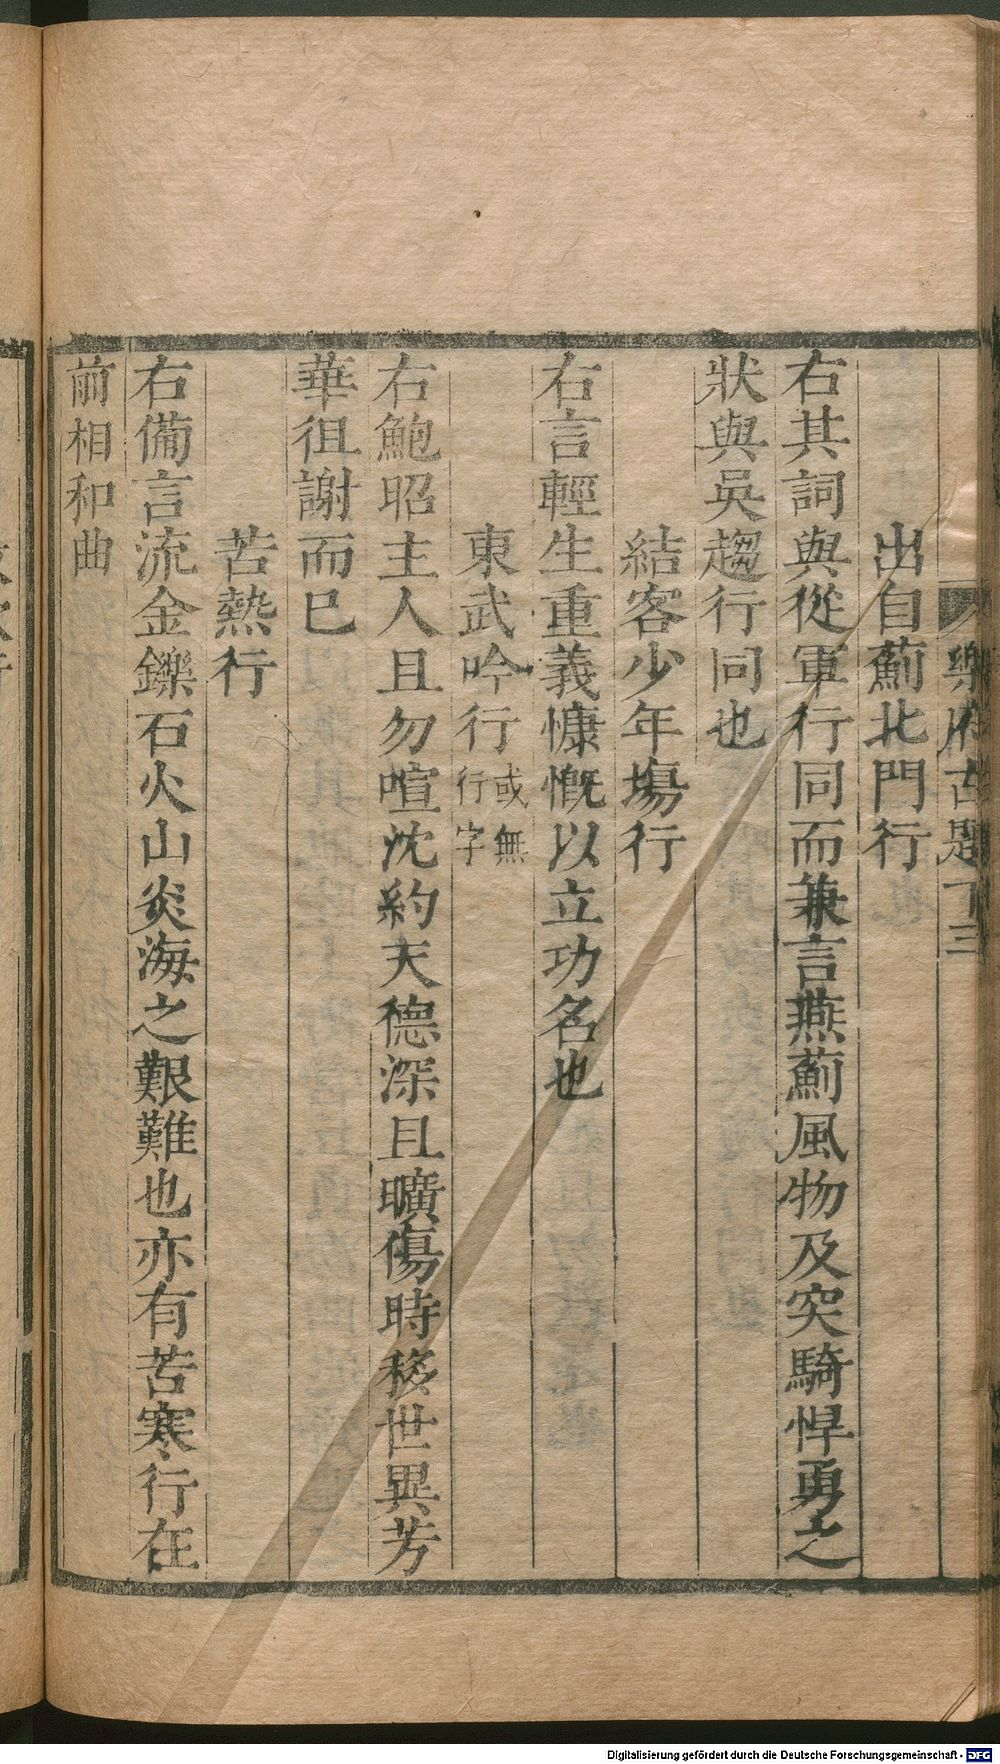 樂府古題下 三
出自薊北門行
右其詞與從軍行同而兼言燕薊風物及突騎悍勇之
狀與吳趨行同也
結客少年場行
右言輕生重義慷慨以立功名也
東武吟行或無行字
右鮑昭主人且勿喧沈約天德深且曠傷時移世異芳
華徂謝而已
苦熱行
右備言流金鑠石火山炎海之艱難也亦有苦寒行在
前相和曲
Digitalisierung gefördert durch die Deutsche Forschungsgemeinschaft - DFG